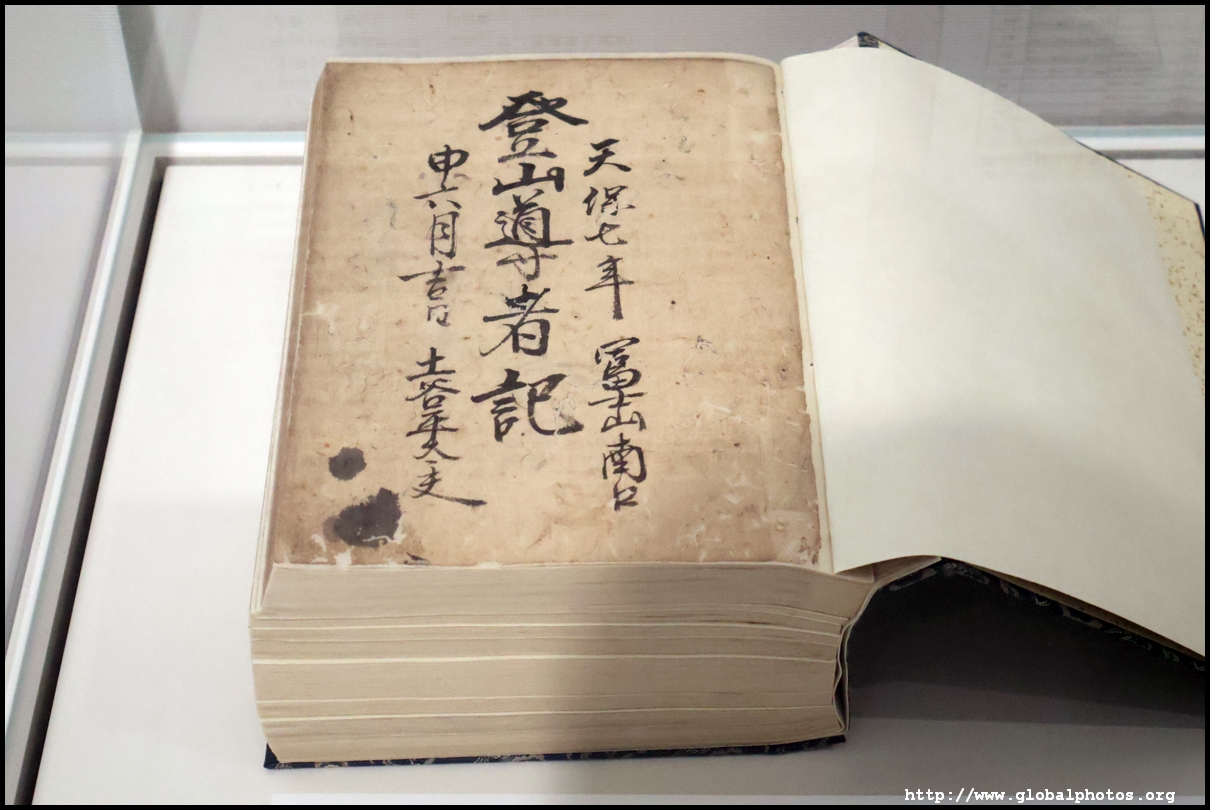 天保七年 冨士山南口
登山導者記
申六月吉日 土谷
http://www.globalphotos.org